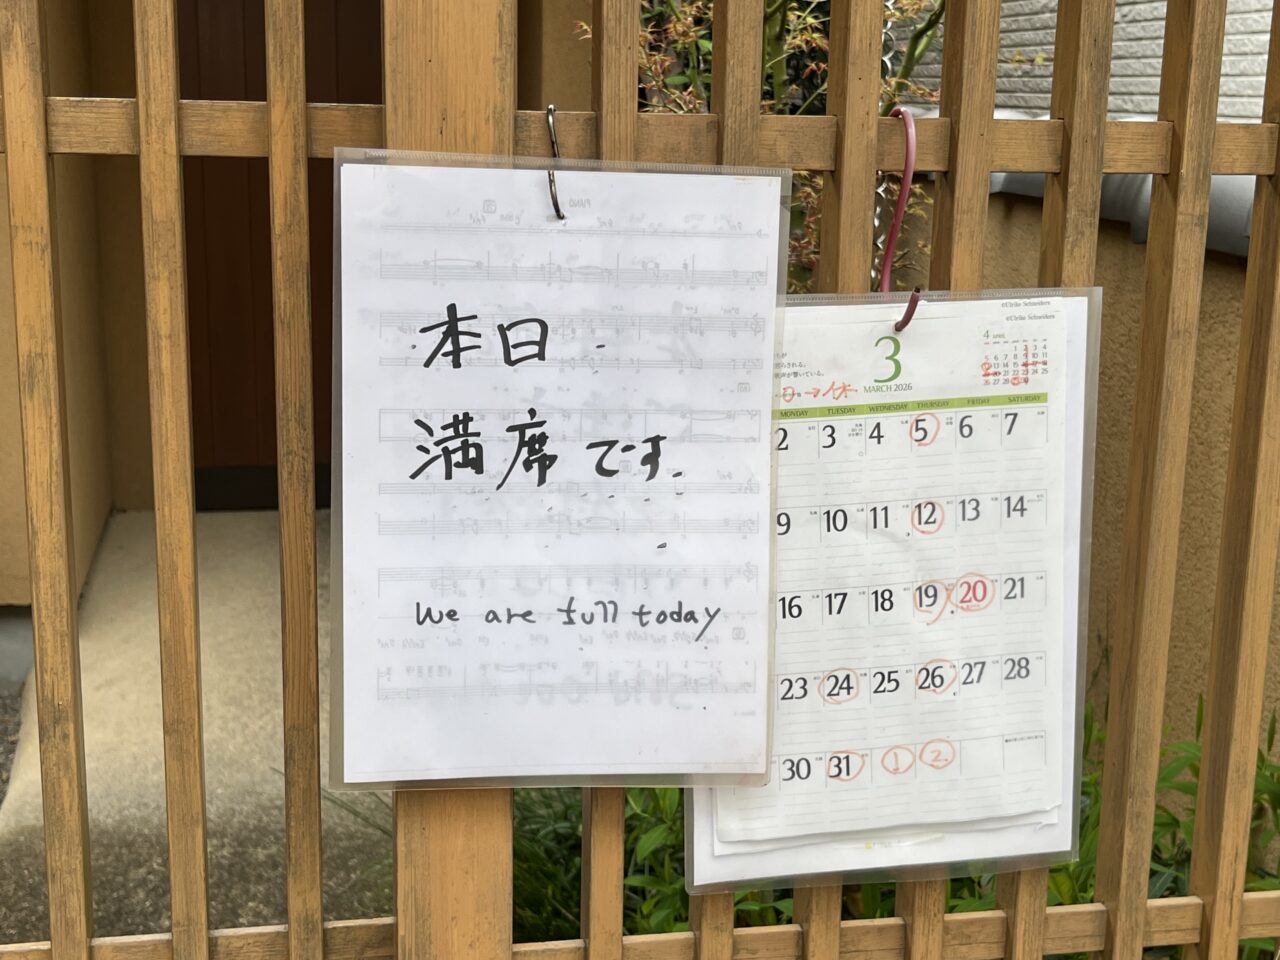 本日
満席です。
We are full today
PIANO
©Ulrike Schneiders
©Ulrike Schneiders
3
MARCH 2026
→休
4 APRIL
MONDAY TUESDAY WEDNESDAY THURSDAY FRIDAY SATURDAY
2 3 4 5 6 7
9 10 11 12 13 14
16 17 18 19 20 21
23 24 25 26 27 28
30 31 1 2